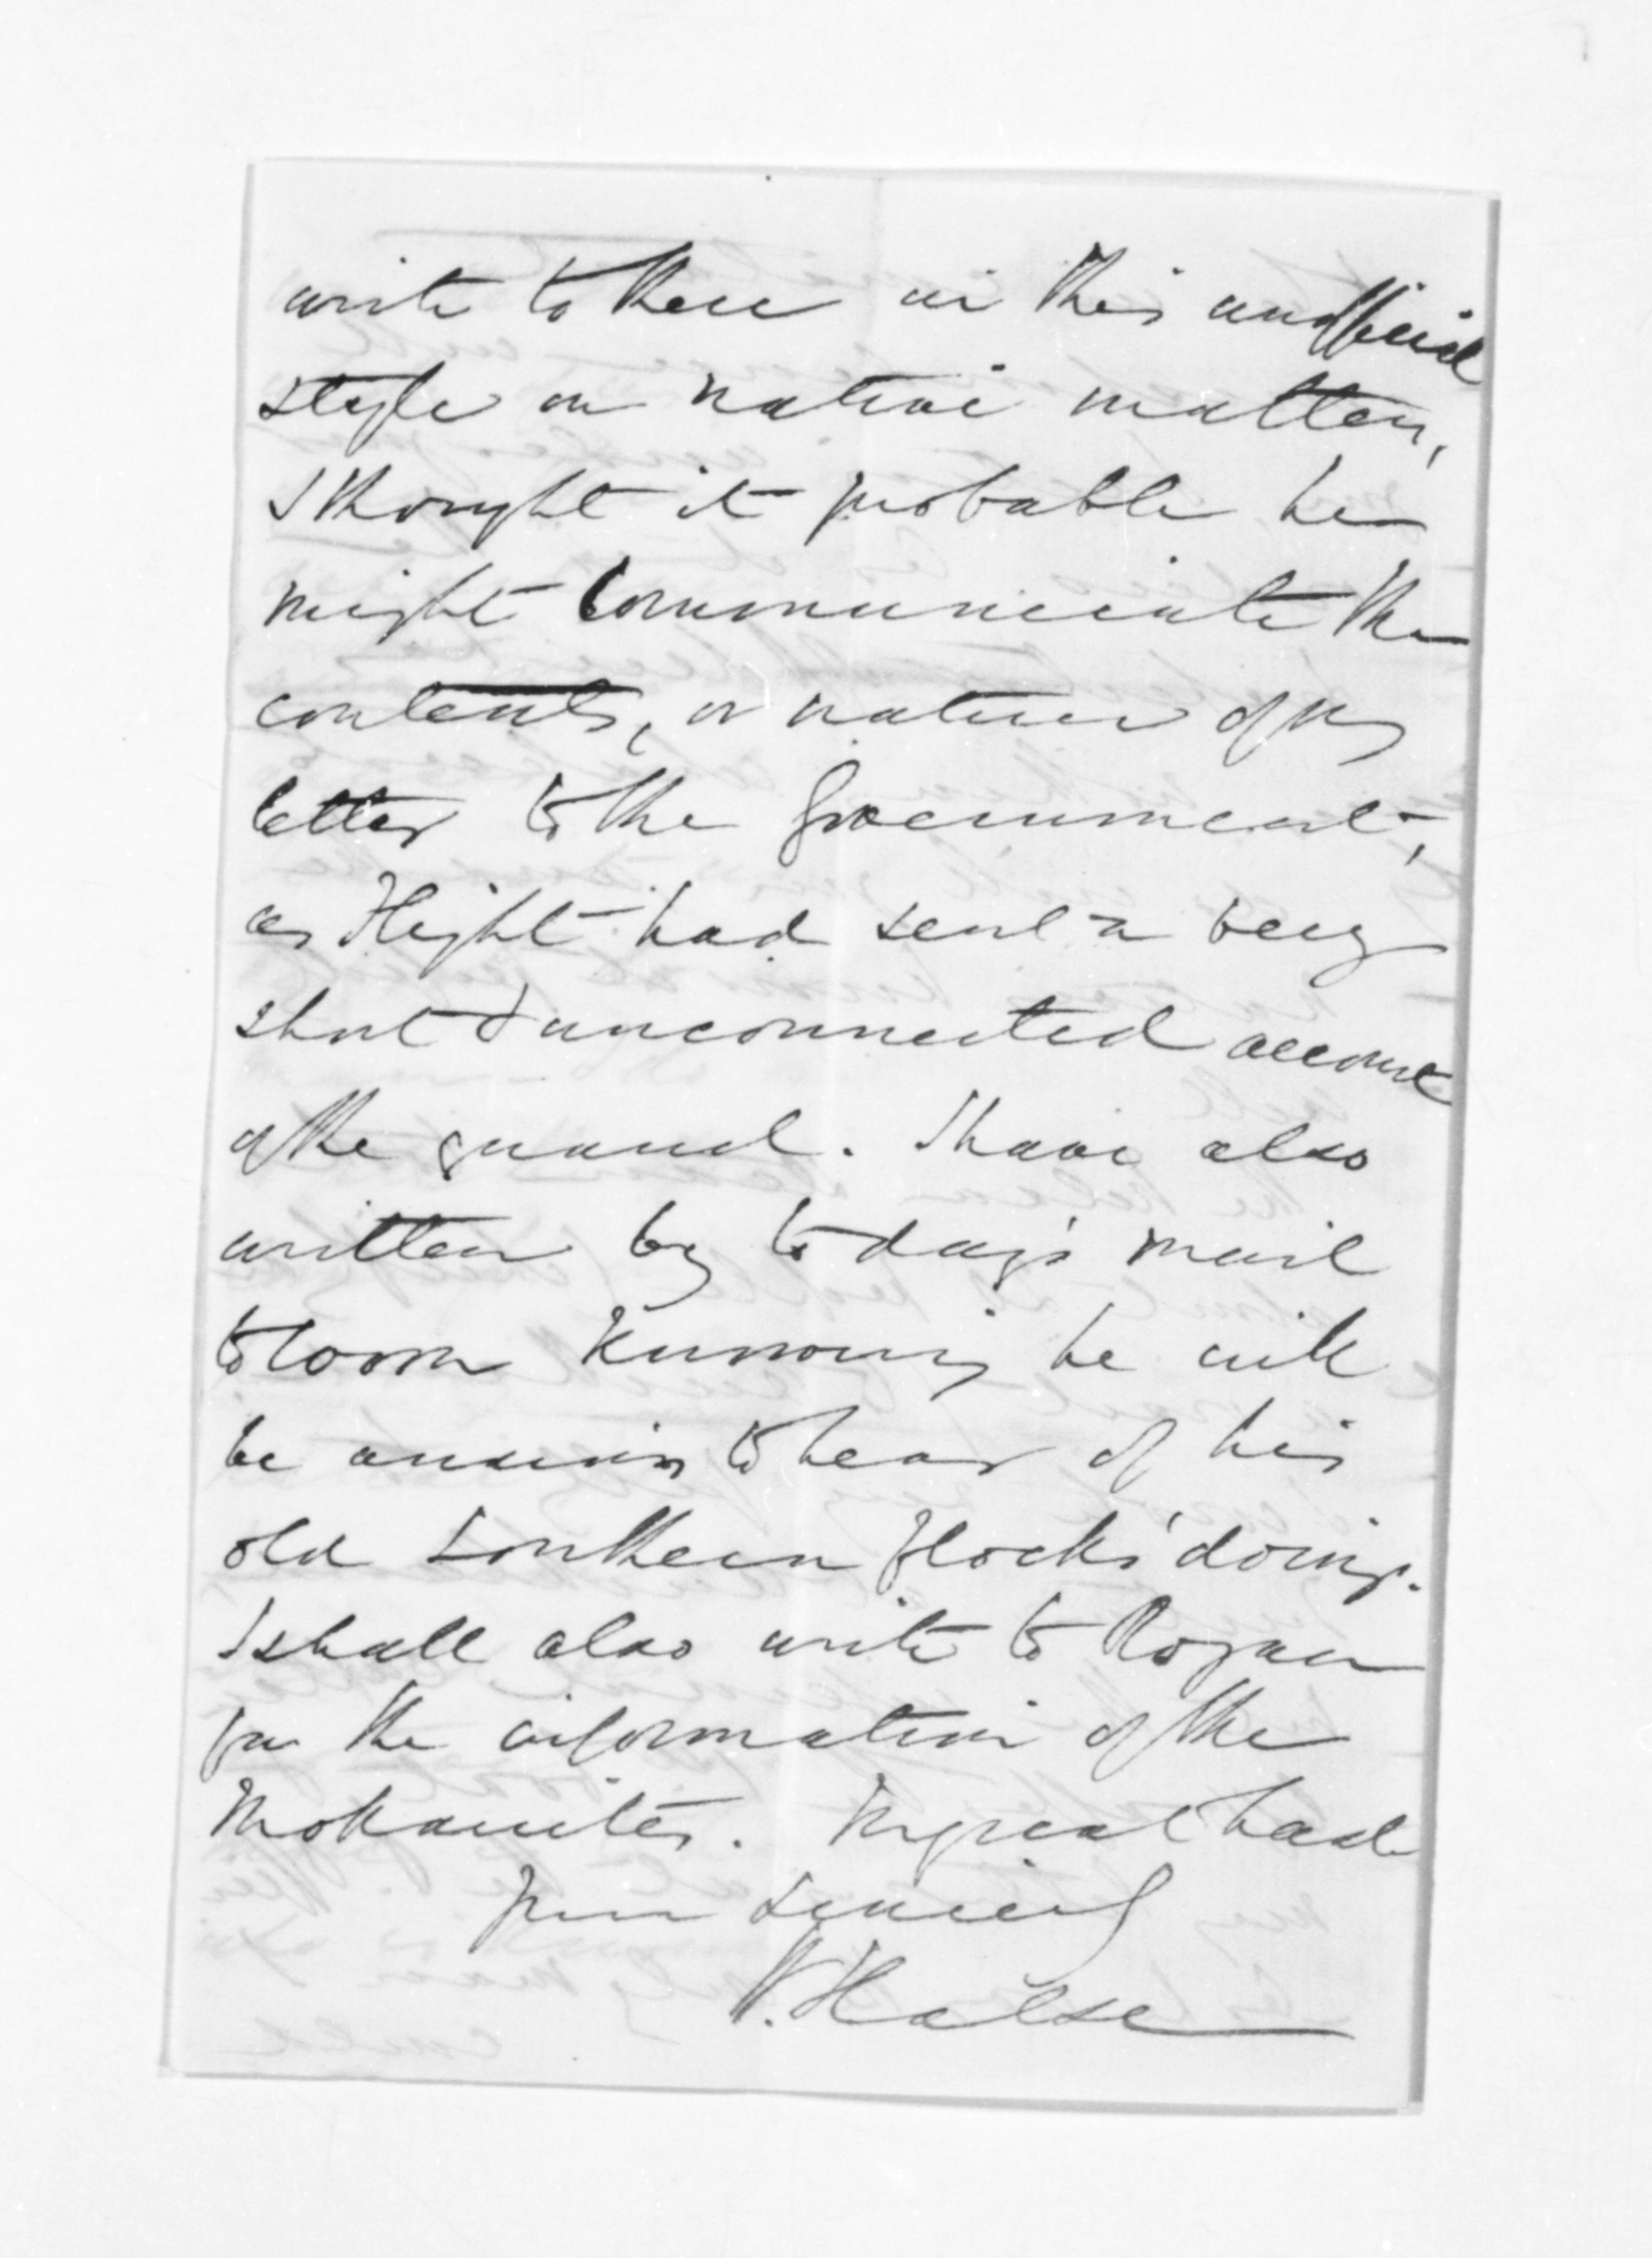 write to there in this unofficial
style on native matters,
I thought it probable he
might communicate the
contents, or nature of my
letter to the Government,
as Flight had sent a very
short & unconnected account
of the quarrel. I have also
written by to day's mail
to Coom knowing he will
be anxious to hear of his
old Southern flocks' doings.
I shall also write to Rogan
for the information of the
Mokauites. In great haste
Yours sincerely
W. Halse